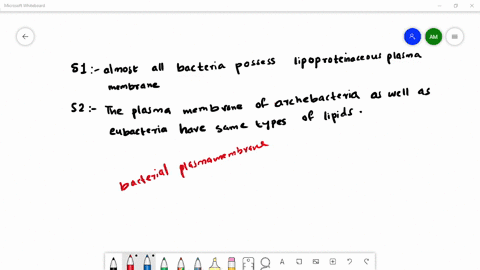 Microsoft Whiteboard
AM
S1:- almost all bacteria possess lipoproteinaceous plasma
membrane
S2:- The plasma membrane of archebacteria as well as
eubacteria have same types of lipids.
bacterial plasmamembrane
A